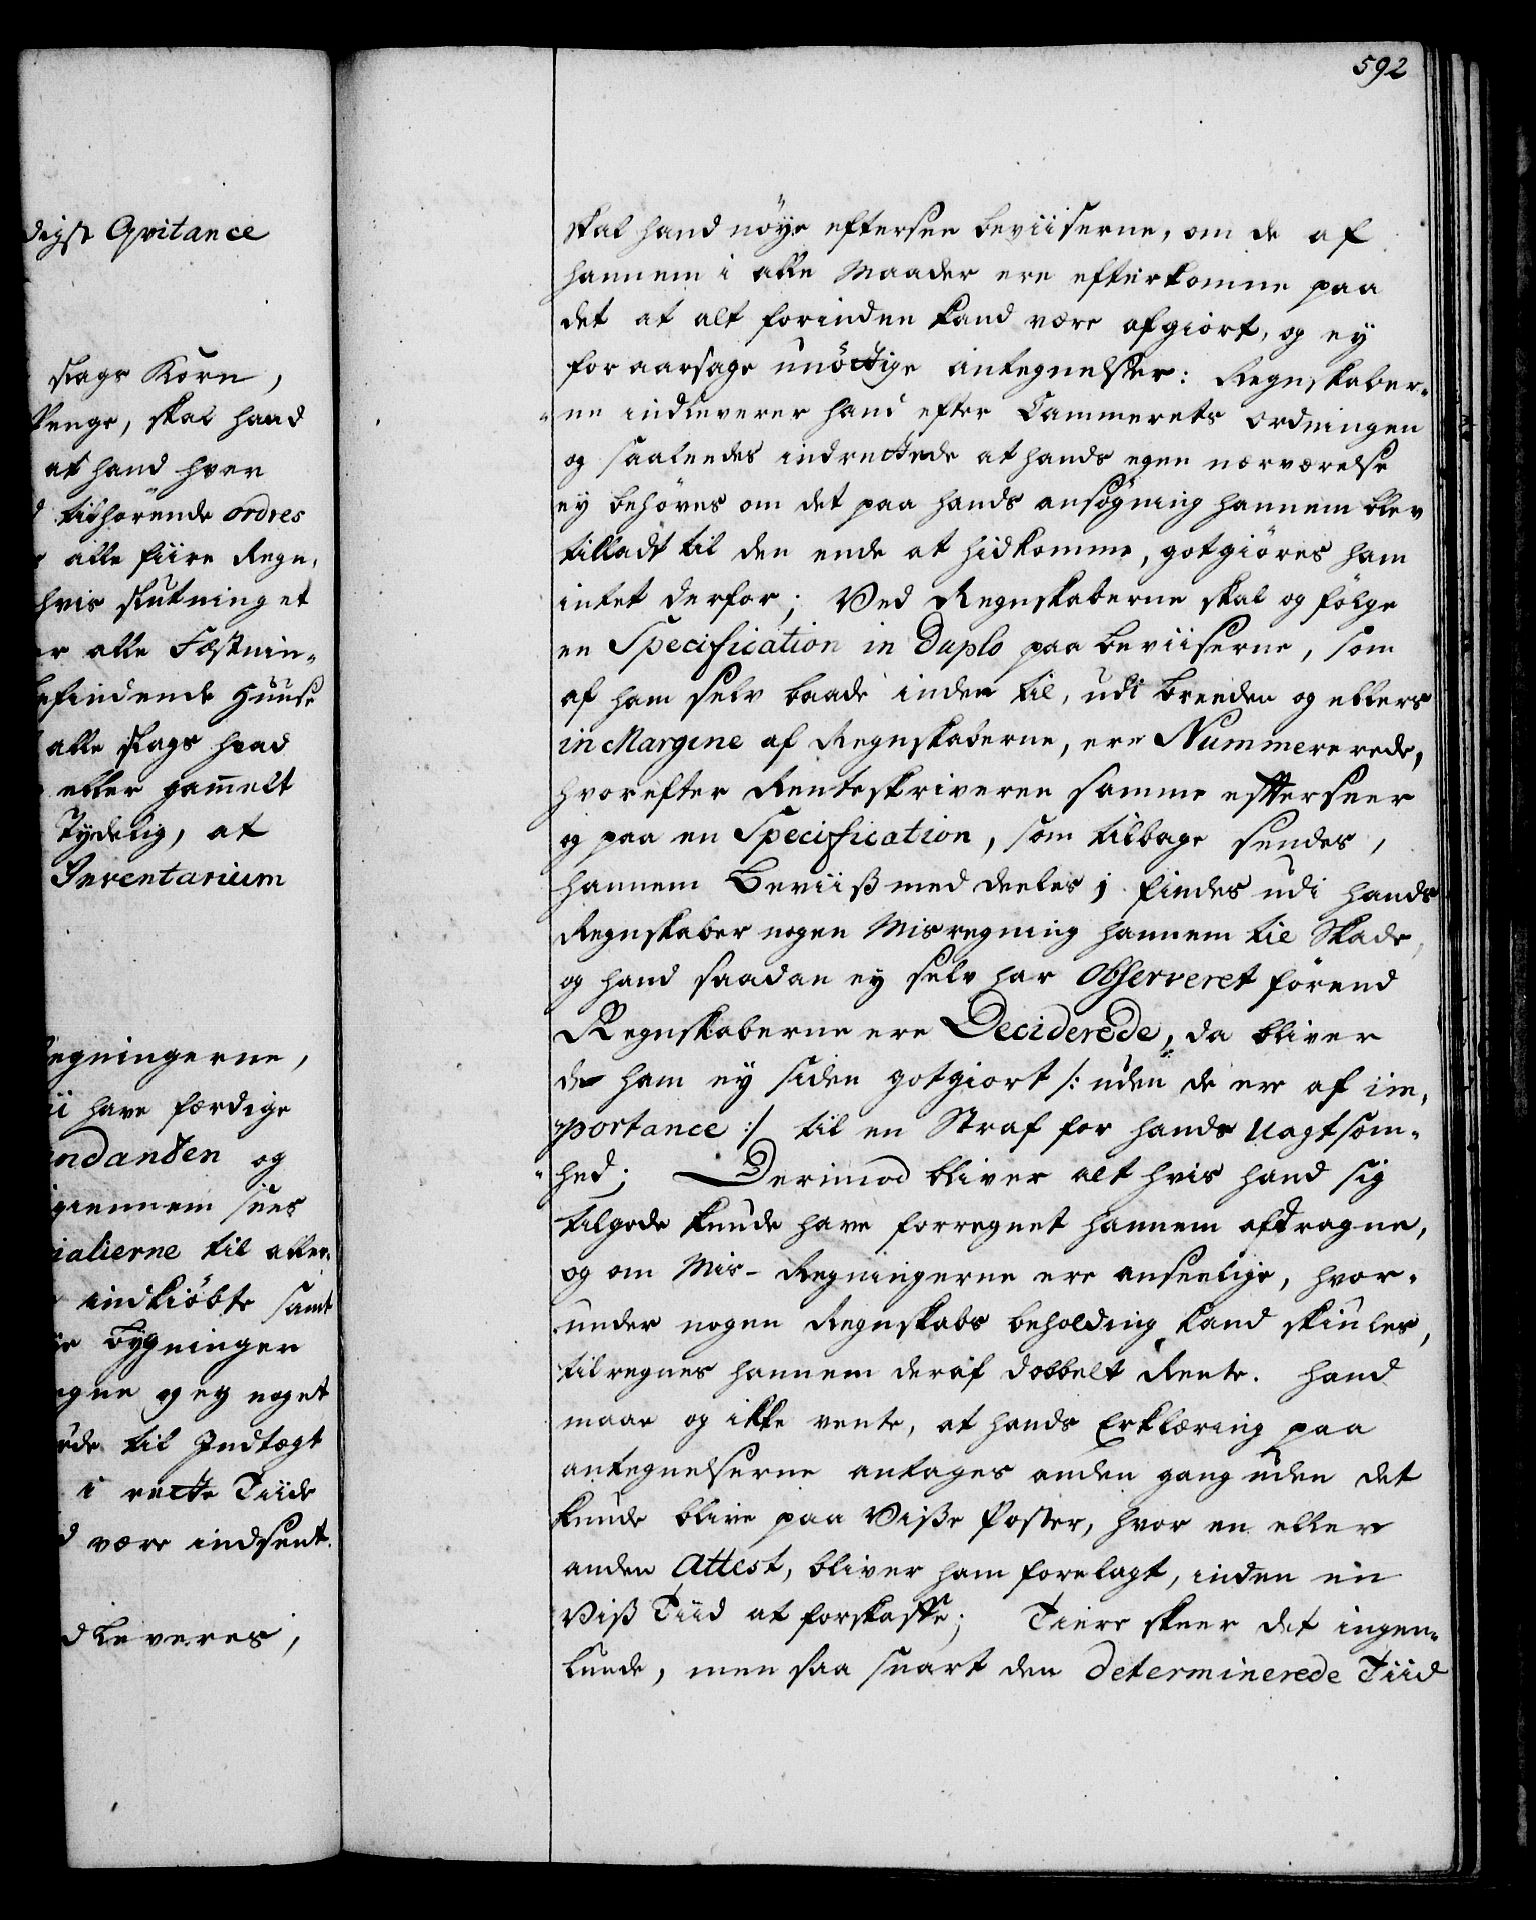 592
digst Qvitance
slags Korn,
Penge, skal hand
at hand hver
tilhörende ordres
alle fiire Regn,
hvis slutning et
er alle Fæstnin-
befindende Huuse
alle slags hvad
eller gamelt
Tydelig, at
Inventarium
egningerne,
have færdige
ndanten og
giennem sees
ialierne til aller-
indkiöbte samt
Bygninger
egne og ey noget
til Indtægt
i rette Tiide
være indsent.
dleveres,
skal hand nöye eftersee beviiserne, om de af
hannem i alle Maader ere efterkomne paa
det at alt forinden kand være afgiort, og ey
foraarsage unöttige antegnelser: Regnskaber-
ne indleverer hand efter Cammerets ordningen
og saaledes indrettede at hands egen nærværelse
ey behöves om det paa hands ansögning hannem blev
tilladt til den ende at hidkomme, gotgiöres ham
intet derfor; Ved Regnskaberne skal og fölge
en Specification in Duplo paa beviiserne, som
af ham selv baade inden til, udi breeden og ellers
in Margine af Regnskaberne, ere Nummererede,
hvorefter Renteskriveren samme efterseer
og paa en Specification, som tilbage sendes,
hannem Beviiß meddeeles; findes udi hands
Regnskaber nogen Misregning hannem til Skade,
og hand saadan ey selv har Observeret förend
Regnskaberne ere Deciderede, da bliver
de ham ey siden gotgiort /: uden de ere af im-
portance :/ til en Straf for hands Uagtsom-
hed; Derimod bliver alt hvis hand sig
tilgode kunde have forregnet hannem afdragne,
og om Mis-Regningerne ere anseelige, hvor-
under nogen Regnskabs beholding kand skiules,
tilregnes hannem deraf dobbelt Rente. Hand
maae og ikke vente, at hands Erklæring paa
antegnelserne antages anden gang uden det
kunde blive paa Viße Poster, hvor en eller
anden Attest, bliver ham forelagt, inden en
Viß Tiid at forskaffe; Tiere skeer det ingen-
lunde, men saa snart den determinerede Tiid